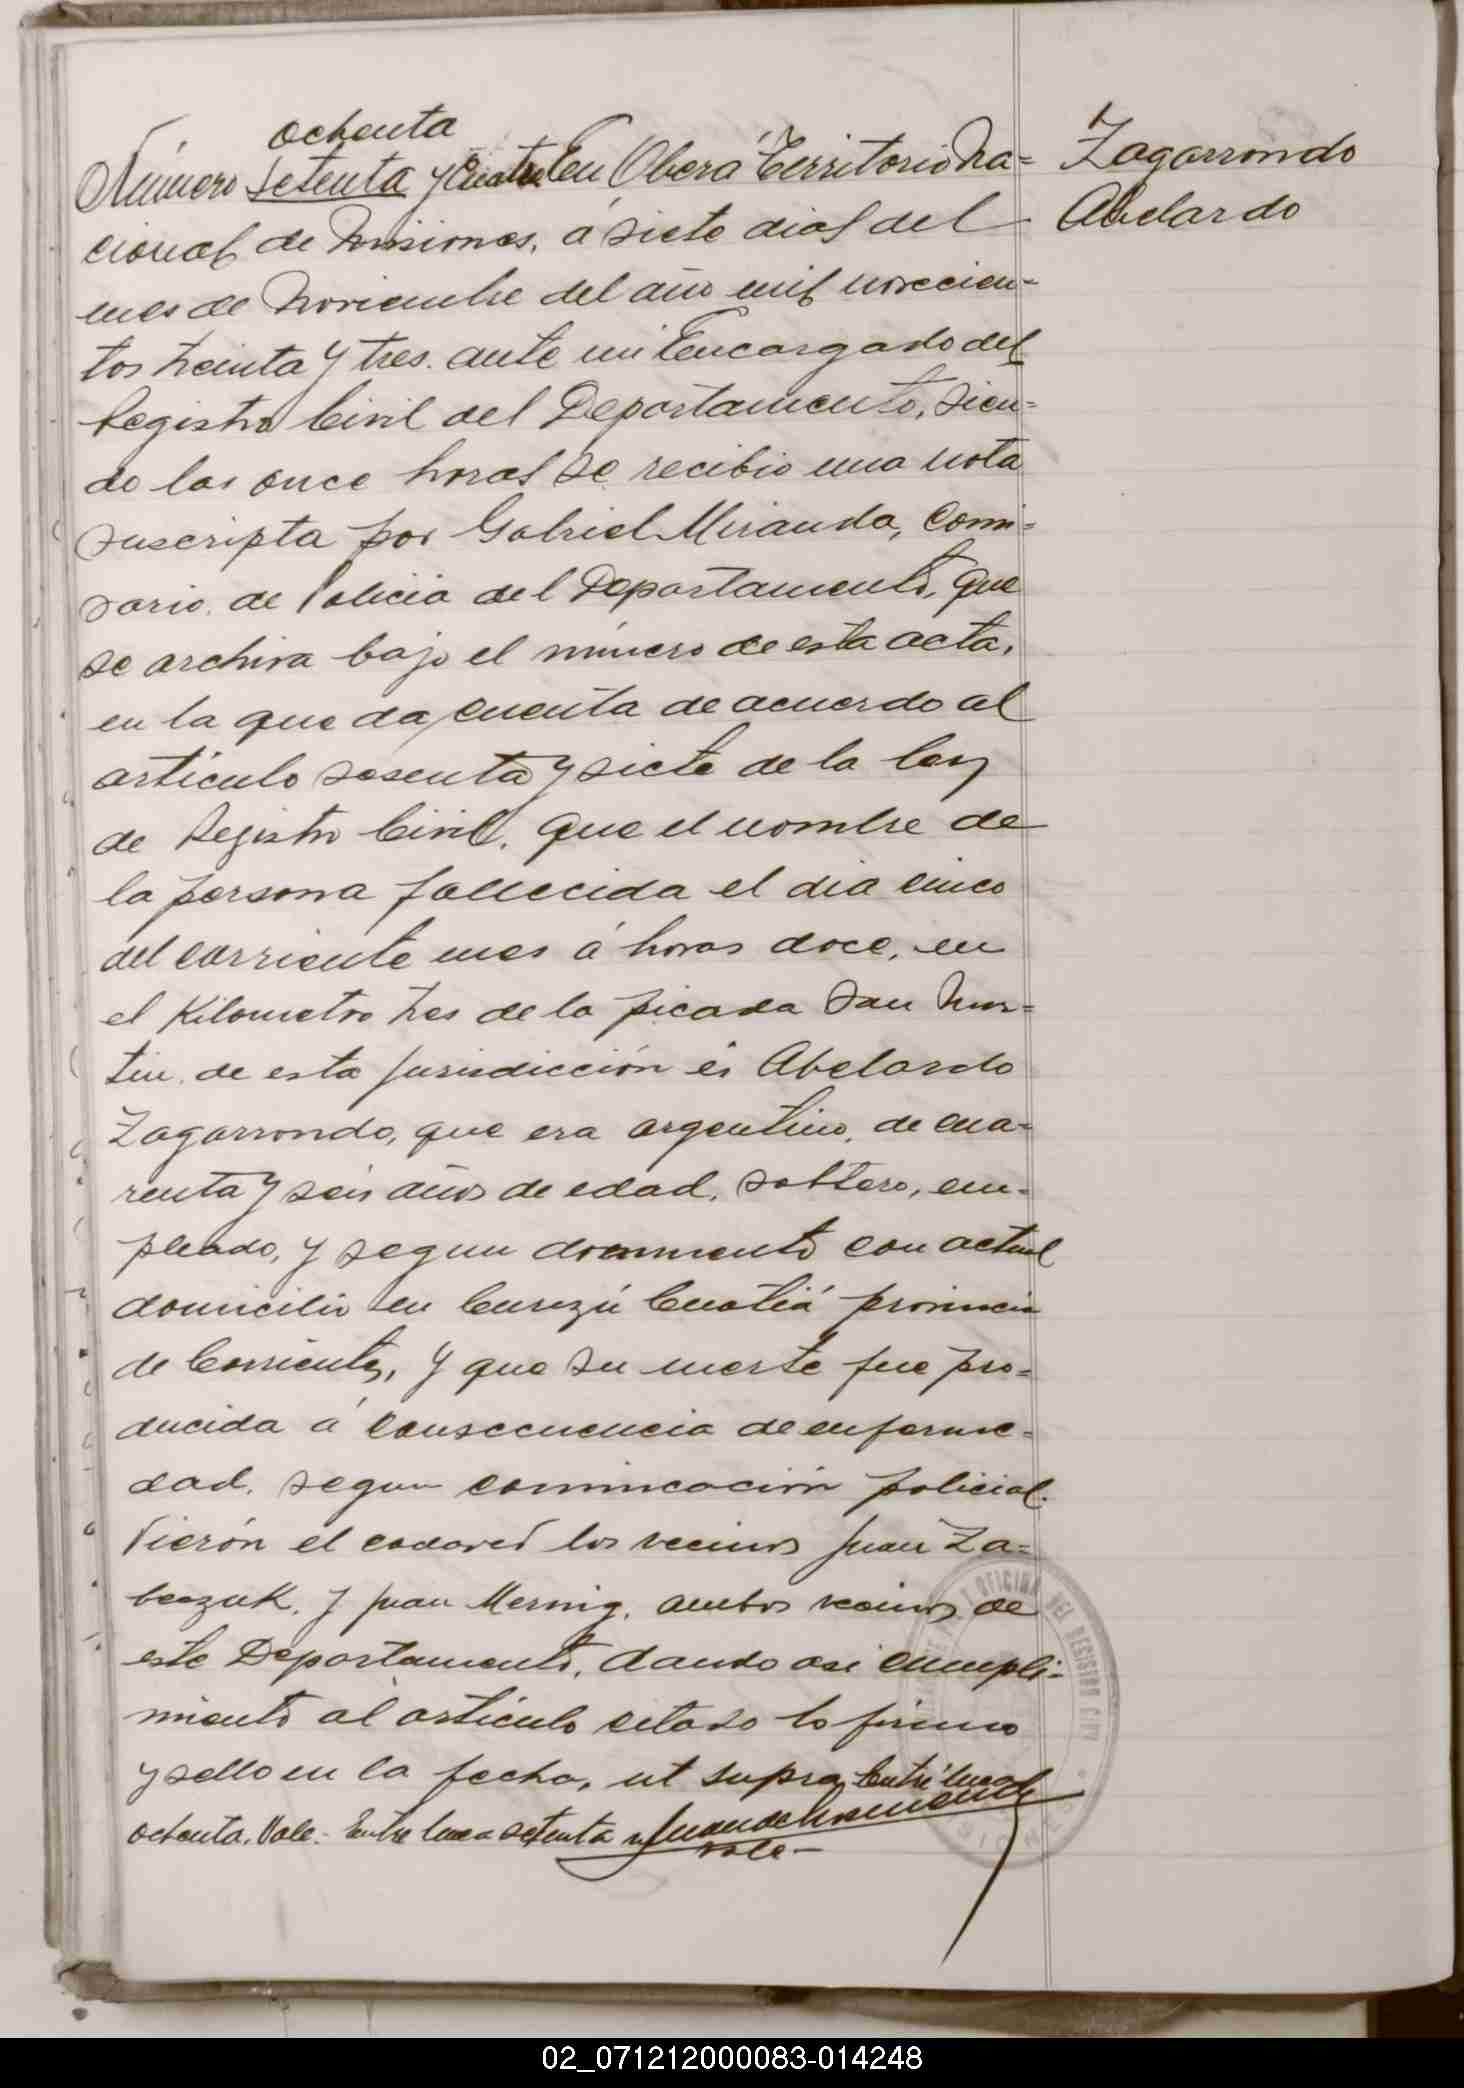 ochenta
Número setenta y cuatro En Oberá Territorio Na=
cional de Misiones, á siete dias del
mes de Noviembre del año mil novecien=
tos treinta y tres. ante mi Encargado del
Registro Civil del Departamento, sien=
do las once horas se recibio una nota
suscripta por Gabriel Miranda, Comi=
sario de Policia del Departamento, que
se archiva bajo el número de esta acta,
en la que da cuenta de acuerdo al
artículo sesenta y siete de la ley
de Registro Civil, que el nombre de
la persona fallecida el dia cinco
del corriente mes á horas doce, en
el Kilometro tres de la picada San Mar=
tin. de esta jurisdicción es Abelardo
Zagarrondo, que era argentino, de cua=
renta y seis años de edad, soltero, em=
pleado, y segun documento con actual
domicilio en Curuzú Cuatiá provincia
de Corrientes, y que su muerte fue pro=
ducida á consecuencia de enferme=
dad, segun comunicación policial.
Vierón el cadaver los vecinos Juan Za=
beczuk, y Juan Mernig, ambos vecinos de
este Departamento, dando asi cumpli=
miento al artículo citado lo firmo
y sello en la fecha, ut supra Entre linea
ochenta. Vale.- Entre linea setenta
vale-
Zagarrondo
Abelardo
OFICINA DEL REGISTRO CIVIL
MISIONES
02_071212000083-014248